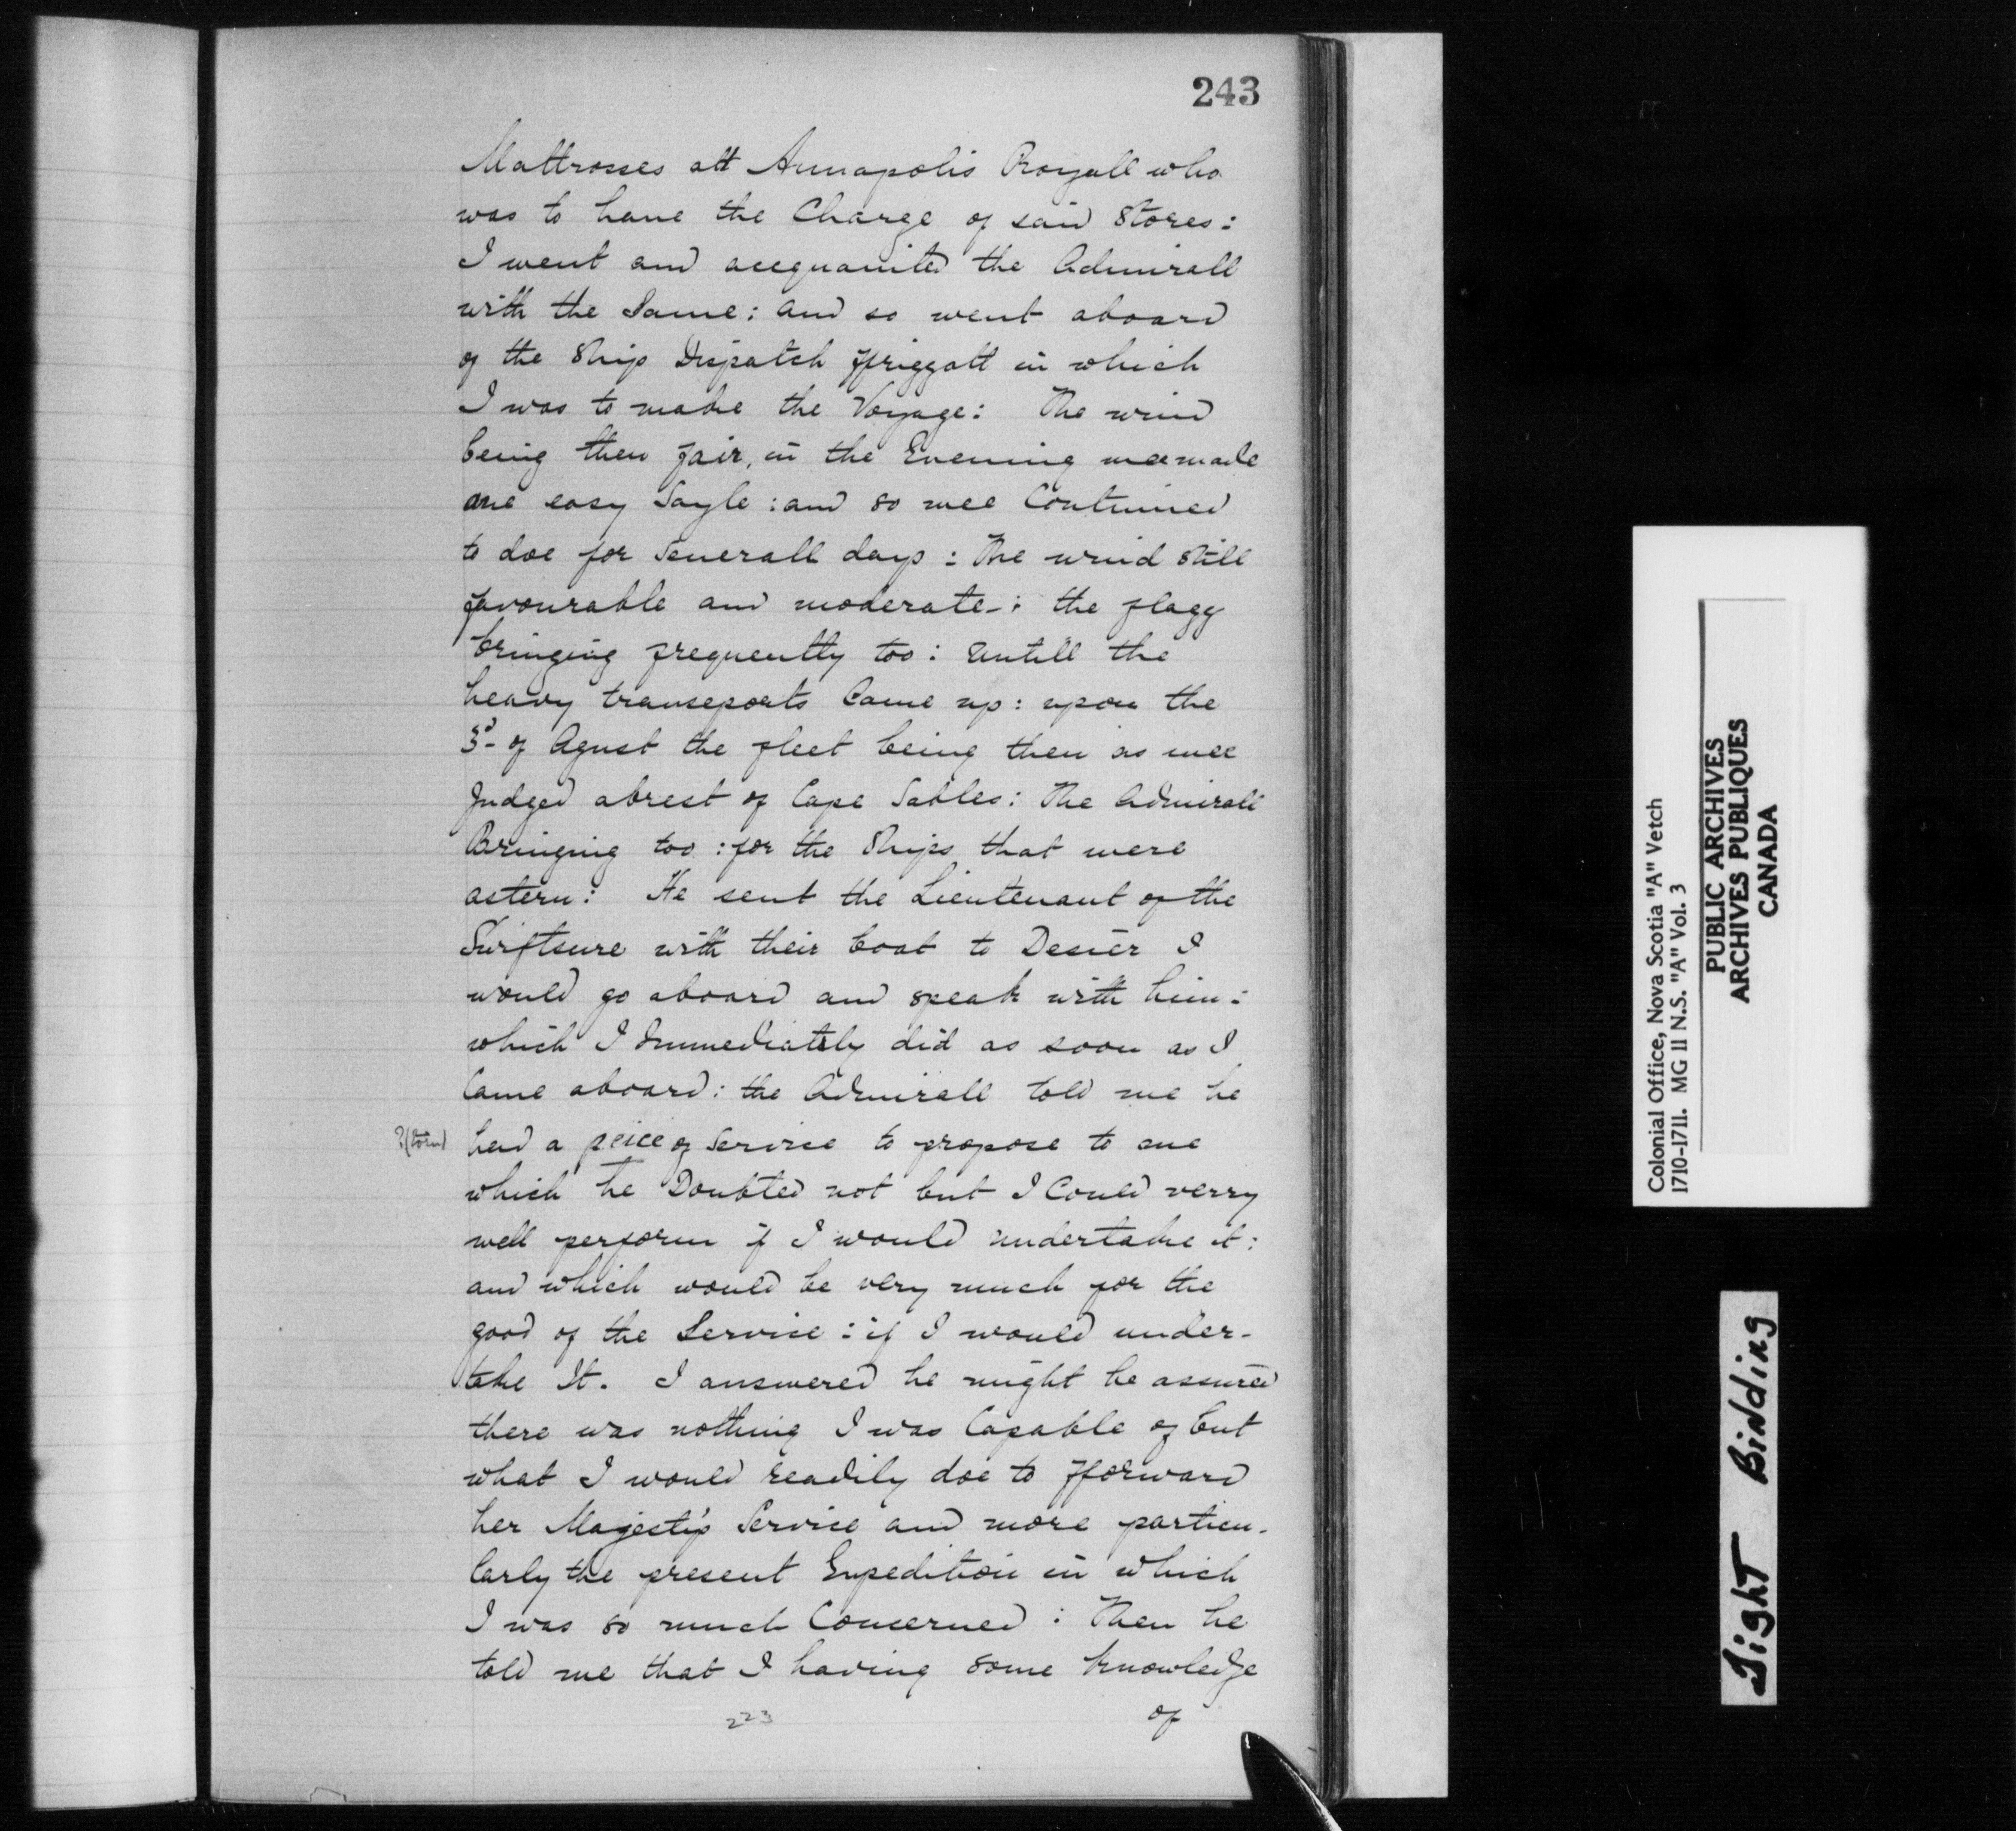 243
Mattrosses att Annapolis Royall who
was to have the Charge of said Stores:
I went and acequainted the Admirall
with the Same: and so went aboard
of the Ship Dispatch ffriggatt in which
I was to make the Voyage: The wind
being then fair, in the Evening wee made
one easy Sayle: and so wee Continued
to doe for Severall days: The wind still
favourable and moderate: the flagg
bringing frequently too: untill the
heavy transeports Came up: upon the
3d of Agust the fleet being then as wee
Judged abrest of Cape Sables: The Admirall
Bringing too: for the Ships that were
astern: He sent the Lieutenant of the
Swiftsure with their boat to Desier I
would go aboard and speak with him:
which I Immediately did as soon as I
Came aboard: the Admirall told me he
?(torn) had a peice of Service to propose to me
which he Doubted not but I Could verry
well perform if I would undertake it:
and which would be very much for the
good of the Service: if I would under-
take It. I answered he might be assured
there was nothing I was Capable of but
what I would readily doe to fforward
her Majestys Service and more particu-
larly the present Expedition in which
I was so much Concerned: Then he
told me that I having some knowledge
of
223
Colonial Office, Nova Scotia "A" Vetch
1710-1711. MG 11 N.S. "A" Vol. 3
PUBLIC ARCHIVES
ARCHIVES PUBLIQUES
CANADA
Tight Bidding